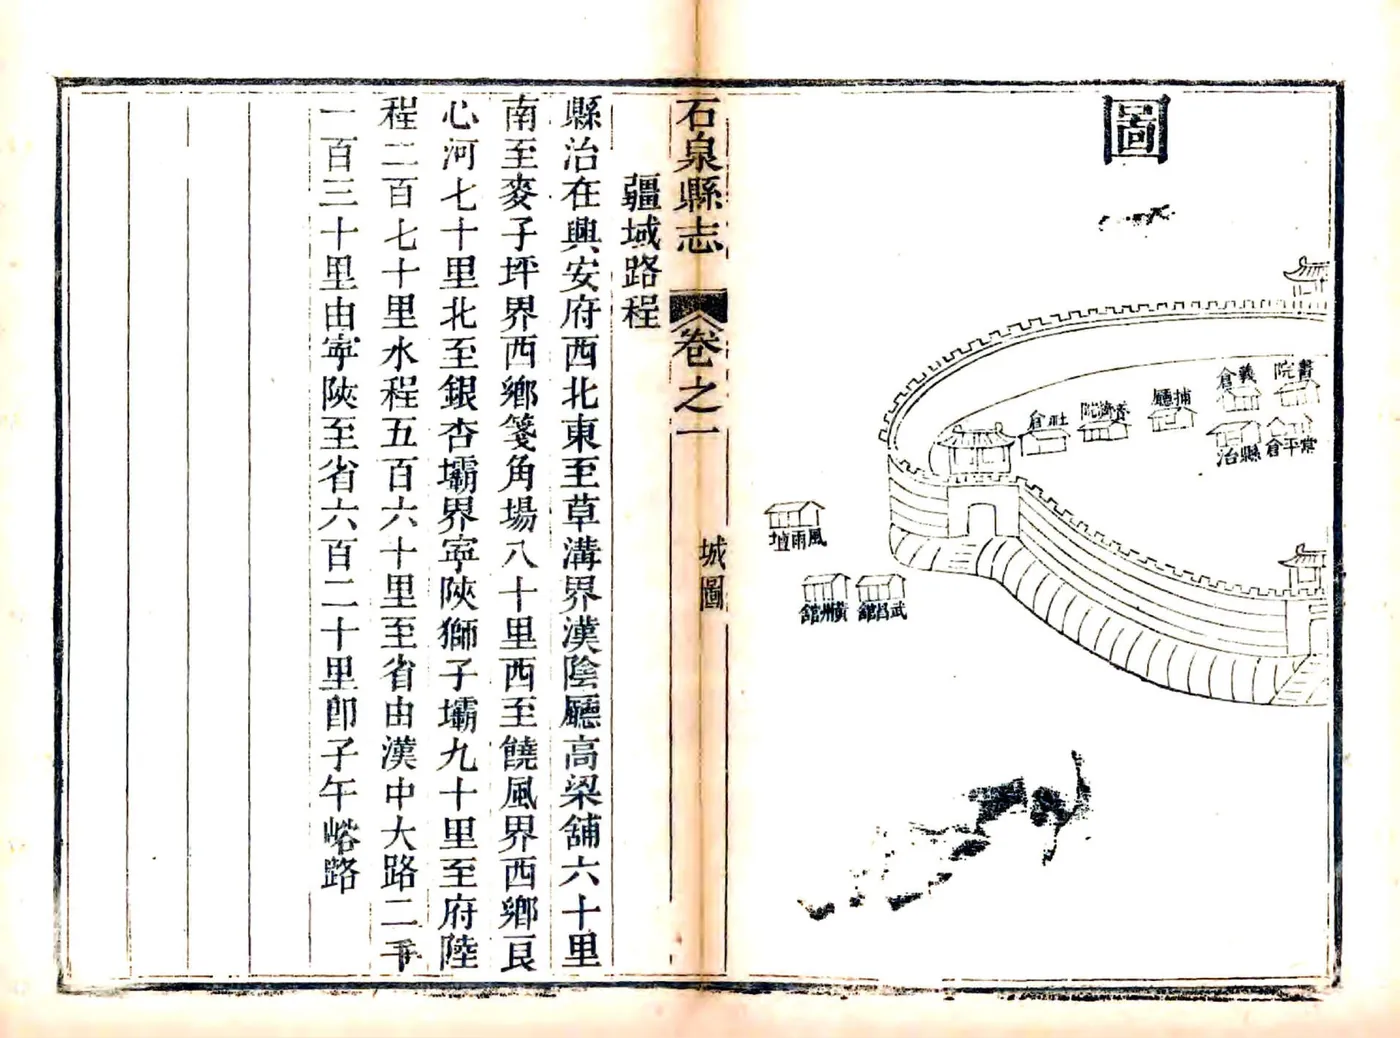 圖
書院
義倉
捕廳
養濟院
社倉
常平倉
縣治
風雨壇
武昌館
黃州館
石泉縣志 卷之一 城圖
疆域路程
縣治在興安府西北東至草溝界漢陰廳高梁舖六十里
南至麥子坪界西鄉箋角場八十里西至饒風界西鄉良
心河七十里北至銀杏壩界寧陝獅子壩九十里至府陸
程二百七十里水程五百六十里至省由漢中大路二千
一百三十里由寧陝至省六百二十里卽子午峪路